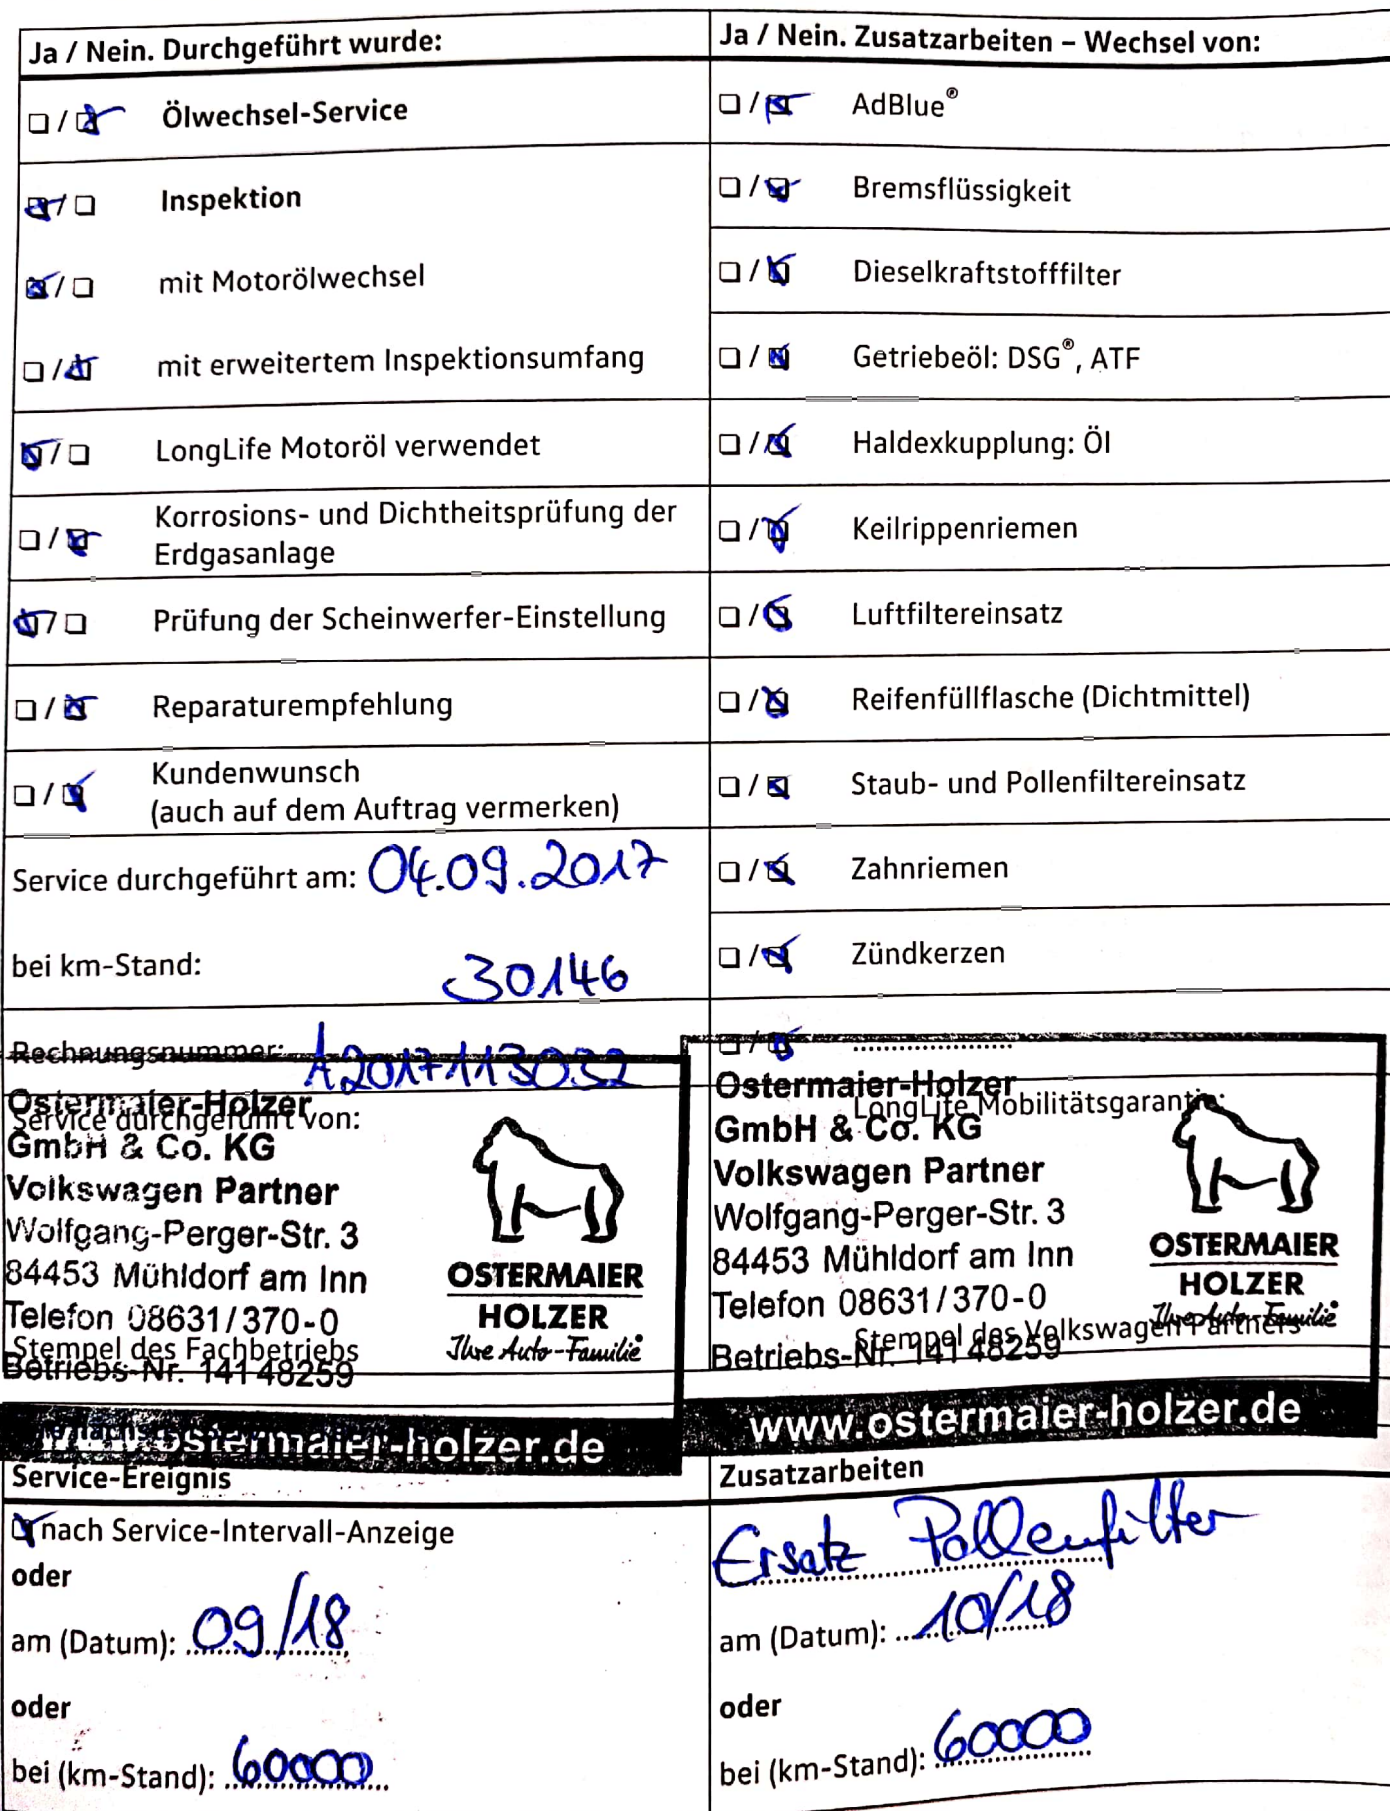 Ja / Nein. Durchgeführt wurde:
☐ / ☒ Ölwechsel-Service
☒ / ☐ Inspektion
☒ / ☐ mit Motorölwechsel
☐ / ☒ mit erweitertem Inspektionsumfang
☒ / ☐ LongLife Motoröl verwendet
☐ / ☒ Korrosions- und Dichtheitsprüfung der
Erdgasanlage
☒ / ☐ Prüfung der Scheinwerfer-Einstellung
☐ / ☒ Reparaturempfehlung
☐ / ☒ Kundenwunsch
(auch auf dem Auftrag vermerken)
Service durchgeführt am: 04.09.2017
bei km-Stand: 30146
Rechnungsnummer: A2017113032
Service durchgeführt von:
Ostermaier-Holzer
GmbH & Co. KG
Volkswagen Partner
Wolfgang-Perger-Str. 3
84453 Mühldorf am Inn
Telefon 08631/370-0
Betriebs-Nr. 141 48259
OSTERMAIER
HOLZER
Ihre Auto-Familie
Stempel des Fachbetriebs
www.ostermaier-holzer.de
Service-Ereignis
☒ nach Service-Intervall-Anzeige
oder
am (Datum): 09/18
oder
bei (km-Stand): 60000
Ja / Nein. Zusatzarbeiten – Wechsel von:
☐ / ☒ AdBlue®
☐ / ☒ Bremsflüssigkeit
☐ / ☒ Dieselkraftstofffilter
☐ / ☒ Getriebeöl: DSG®, ATF
☐ / ☒ Haldexkupplung: Öl
☐ / ☒ Keilrippenriemen
☐ / ☒ Luftfiltereinsatz
☐ / ☒ Reifenfüllflasche (Dichtmittel)
☐ / ☒ Staub- und Pollenfiltereinsatz
☐ / ☒ Zahnriemen
☐ / ☒ Zündkerzen
☐ / ☒ ....................
LongLife Mobilitätsgarantie:
Ostermaier-Holzer
GmbH & Co. KG
Volkswagen Partner
Wolfgang-Perger-Str. 3
84453 Mühldorf am Inn
Telefon 08631/370-0
Betriebs-Nr. 141 48259
OSTERMAIER
HOLZER
Ihre Auto-Familie
Stempel des Volkswagen Partners
www.ostermaier-holzer.de
Zusatzarbeiten
Ersatz Pollenfilter
am (Datum): 10/18
oder
bei (km-Stand): 60000